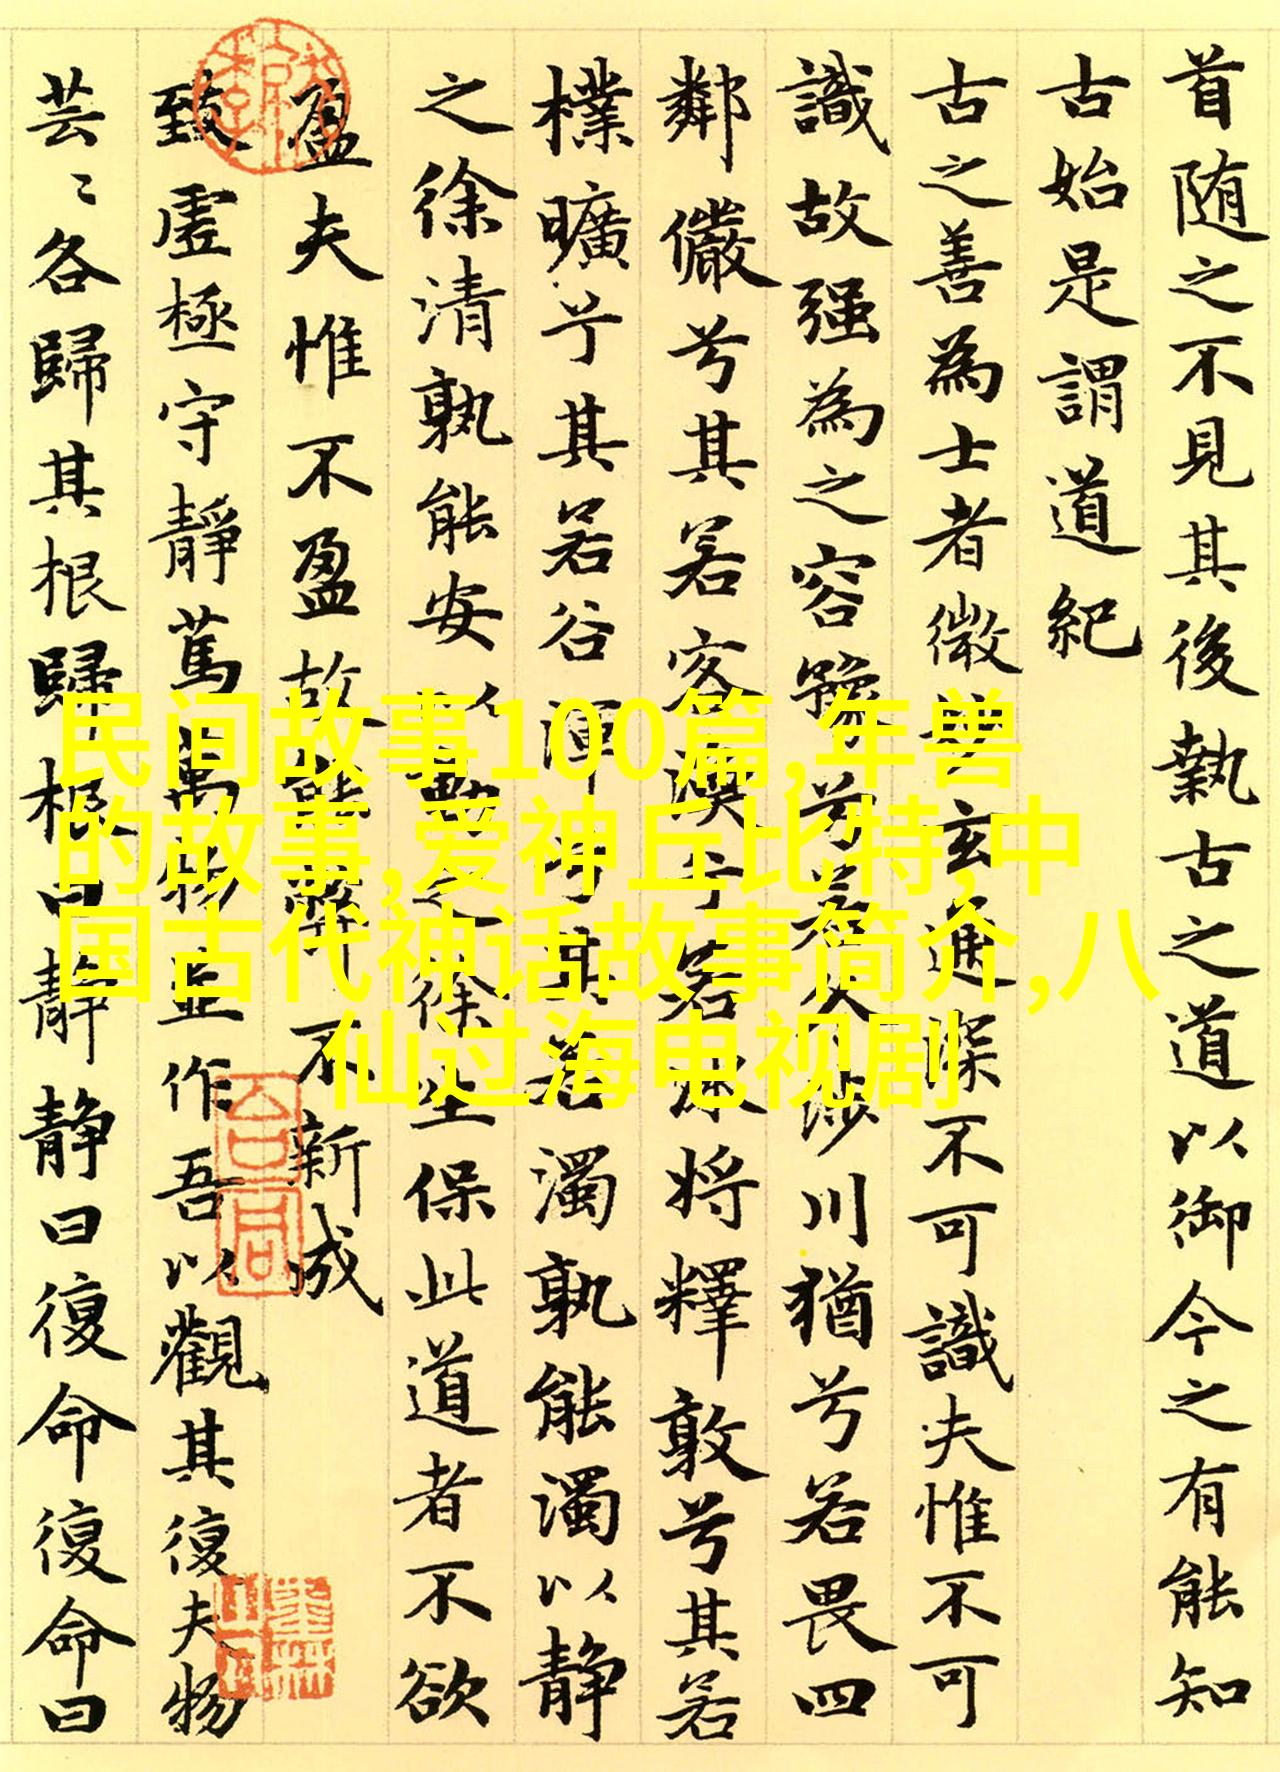 首随之不見其後執古之道以御今之有能知
古始是謂道紀
古之善為士者微妙玄通深不可識夫惟不可
識故强為之容豫兮若冬涉川猶兮若畏四
鄰儼兮其若客渙兮若冰將釋敦兮其若
樸曠兮其若谷渾兮其若濁孰能濁以静
之徐清孰能安以動之徐生保此道者不欲
盈夫惟不盈故能弊不新成
致虛極守靜篤萬物並作吾以觀其復夫物
芸〻各歸其根歸根曰静静曰復命復命曰
民间故事100篇,年兽
的故事,爱神丘比特,中
国古代神话故事简介,八
仙过海电视剧